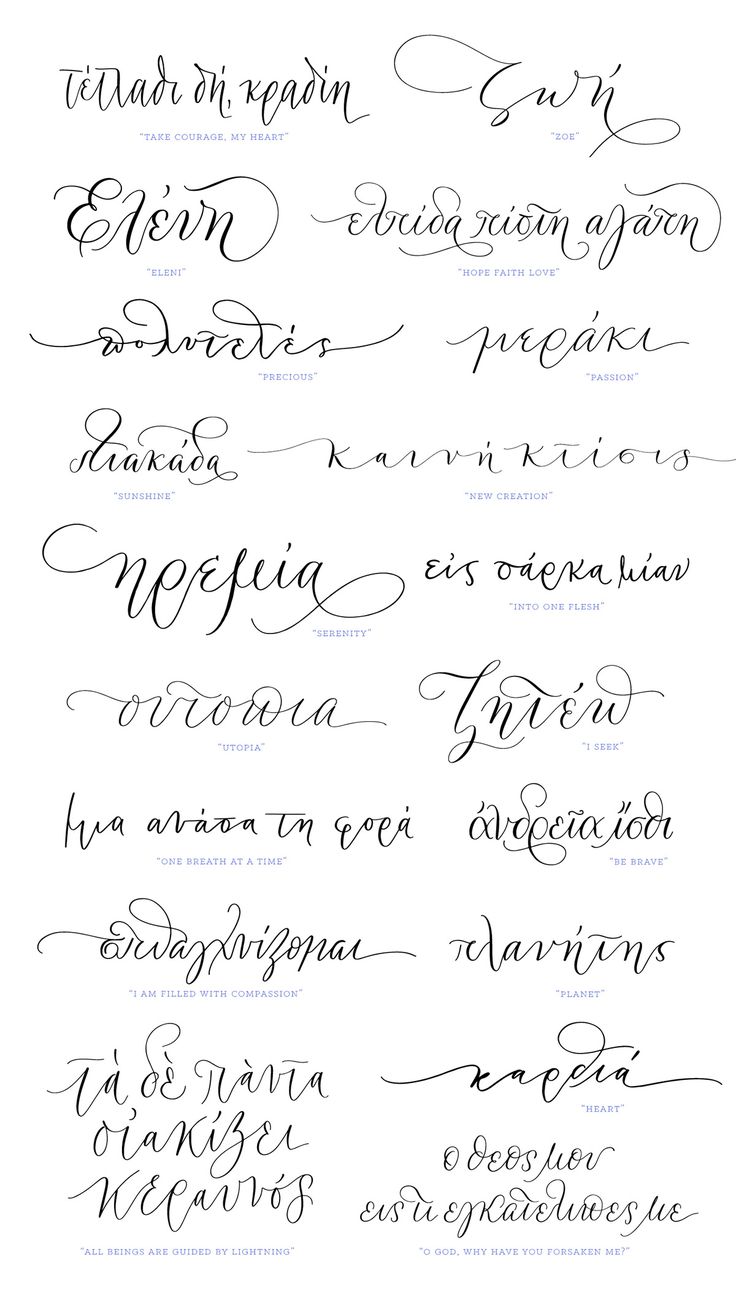 τέτλαθι δή, κραδίη
"TAKE COURAGE, MY HEART"
ζωή
"ZOE"
Ελένη
"ELENI"
ελπίδα πίστη αγάπη
"HOPE FAITH LOVE"
πολυτελές
"PRECIOUS"
μεράκι
"PASSION"
λιακάδα
"SUNSHINE"
καινή κτίσις
"NEW CREATION"
ηρεμία
"SERENITY"
εἰς σάρκα μίαν
"INTO ONE FLESH"
ουτοπια
"UTOPIA"
ζητέω
"I SEEK"
μια ανάσα τη φορά
"ONE BREATH AT A TIME"
ἀνδρεῖα ἴσθι
"BE BRAVE"
σπλαγχνίζομαι
"I AM FILLED WITH COMPASSION"
πλανήτης
"PLANET"
τὰ δὲ πὰντα
οἰακίζει
κεραυνός
"ALL BEINGS ARE GUIDED BY LIGHTNING"
καρδιά
"HEART"
ο θεος μου
εις τι εγκατελιπες με
"O GOD, WHY HAVE YOU FORSAKEN ME?"